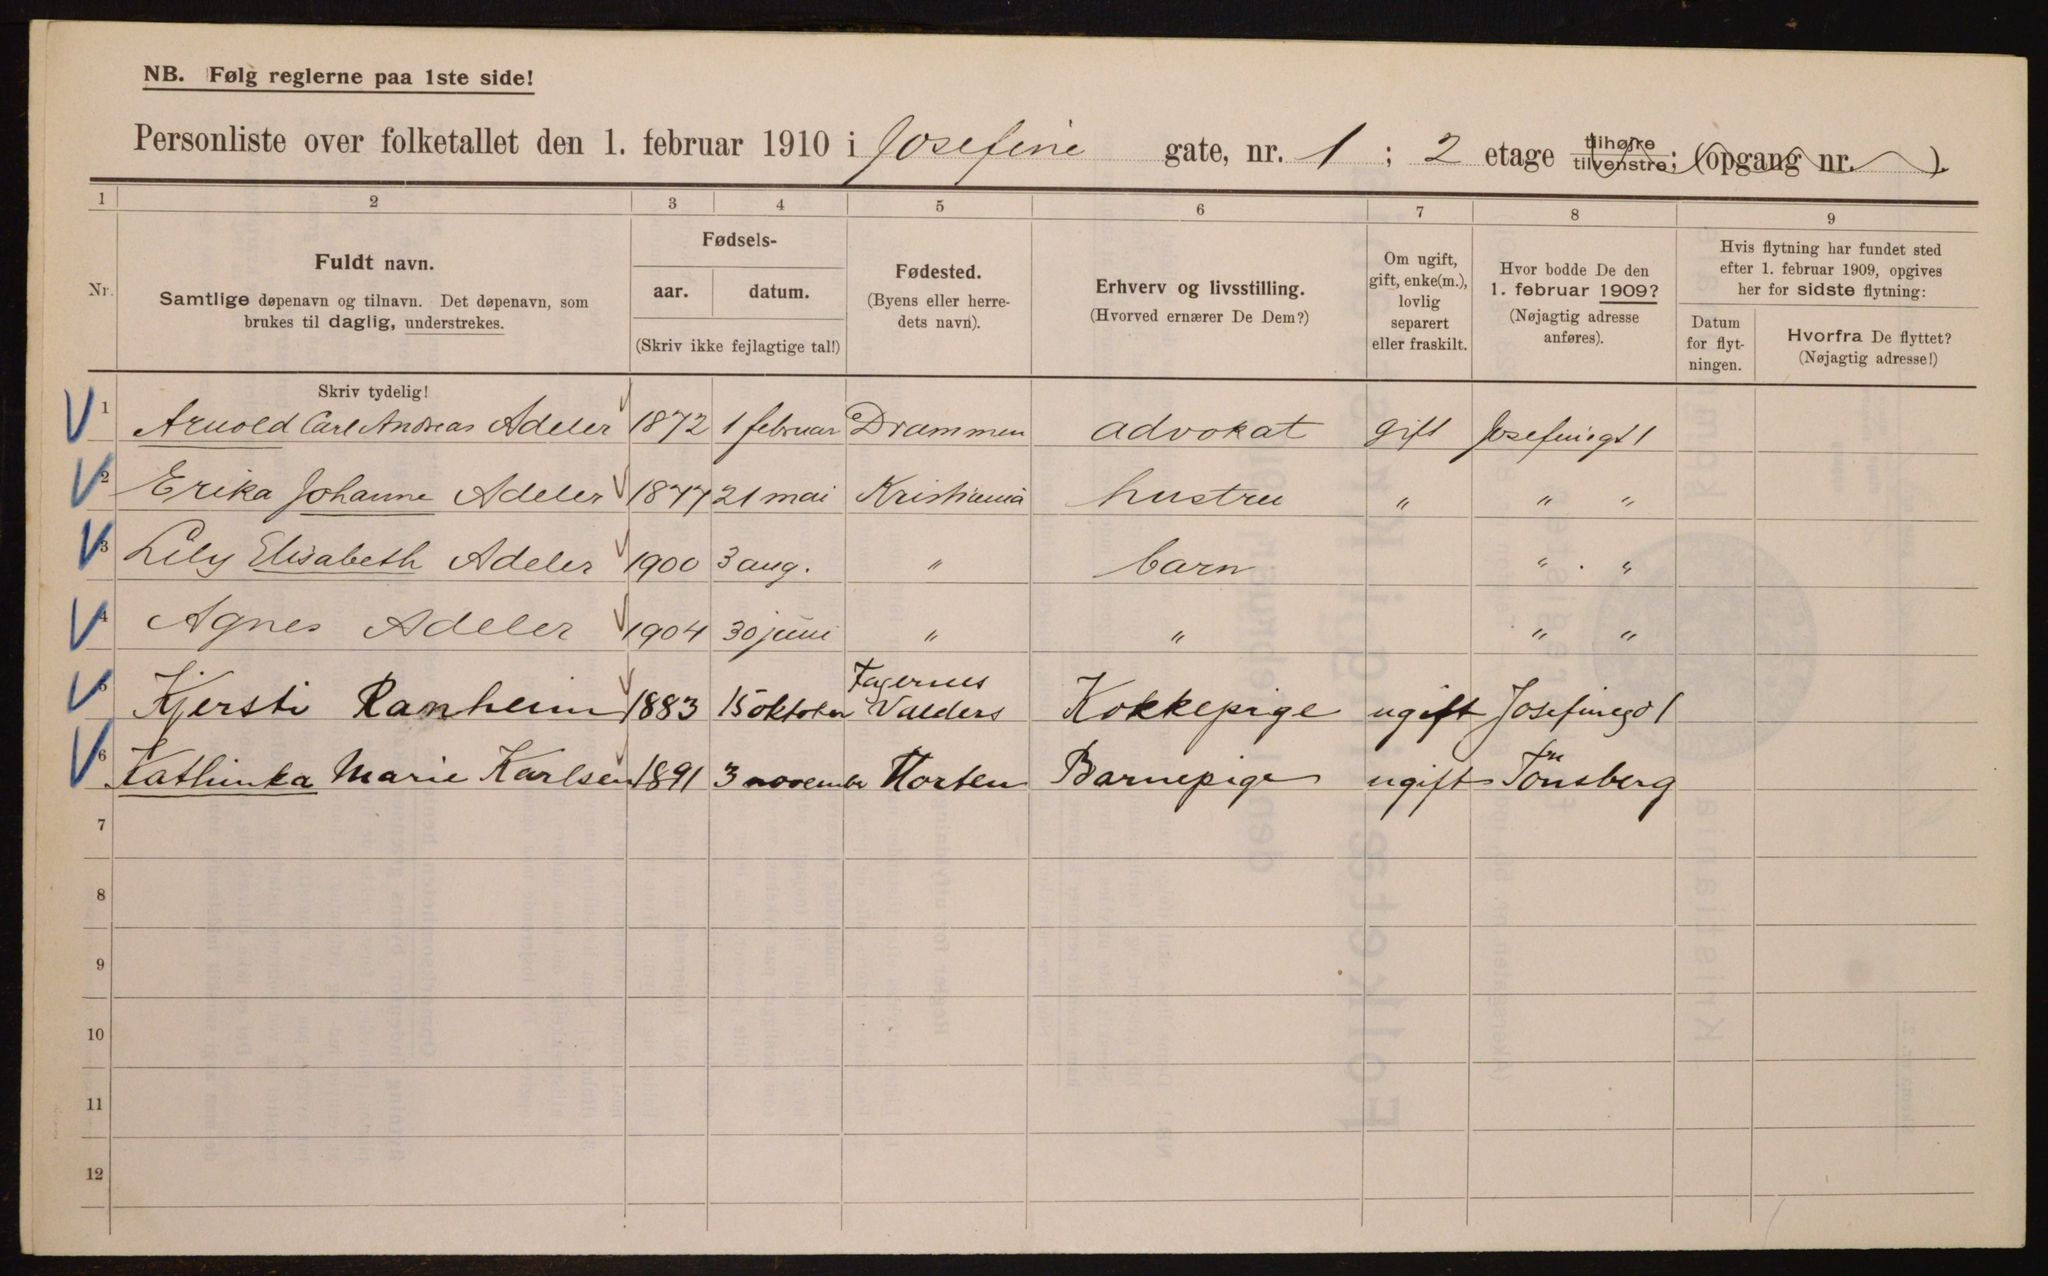 NB. Følg reglerne paa 1ste side!
Personliste over folketallet den 1. februar 1910 i Josefine gate, nr. 1 ; 2 etage tilhøire tilvenstre; (opgang nr. ).
1 2 3 4 5 6 7 8 9
Nr.
Fuldt navn.
Samtlige døpenavn og tilnavn. Det døpenavn, som
brukes til daglig, understrekes.
Skriv tydelig!
Fødsels-
aar. datum.
(Skriv ikke fejlagtige tal!)
Fødested.
(Byens eller herre-
dets navn).
Erhverv og livsstilling.
(Hvorved ernærer De Dem?)
Om ugift,
gift, enke(m.),
lovlig
separert
eller fraskilt.
Hvor bodde De den
1. februar 1909?
(Nøjagtig adresse
anføres).
Hvis flytning har fundet sted
efter 1. februar 1909, opgives
her for sidste flytning:
Datum
for flyt-
ningen.
Hvorfra De flyttet?
(Nøjagtig adresse!)
1 Arnold Carl Andreas Adeler 1872 1 februar Drammen advokat gift Josefinegt 1
2 Erika Johanne Adeler 1877 21 mai Kristiania hustru " " "
3 Lily Elisabeth Adeler 1900 3 aug. " barn " "
4 Agnes Adeler 1904 30 juni " " " "
5 Kjersti Ranheim 1883 15 oktober Fagernes Valders Kokkepige ugift Josefinegt 1
6 Kathinka Marie Karlsen 1891 3 november Horten Barnepige ugift Tönsberg
7
8
9
10
11
12